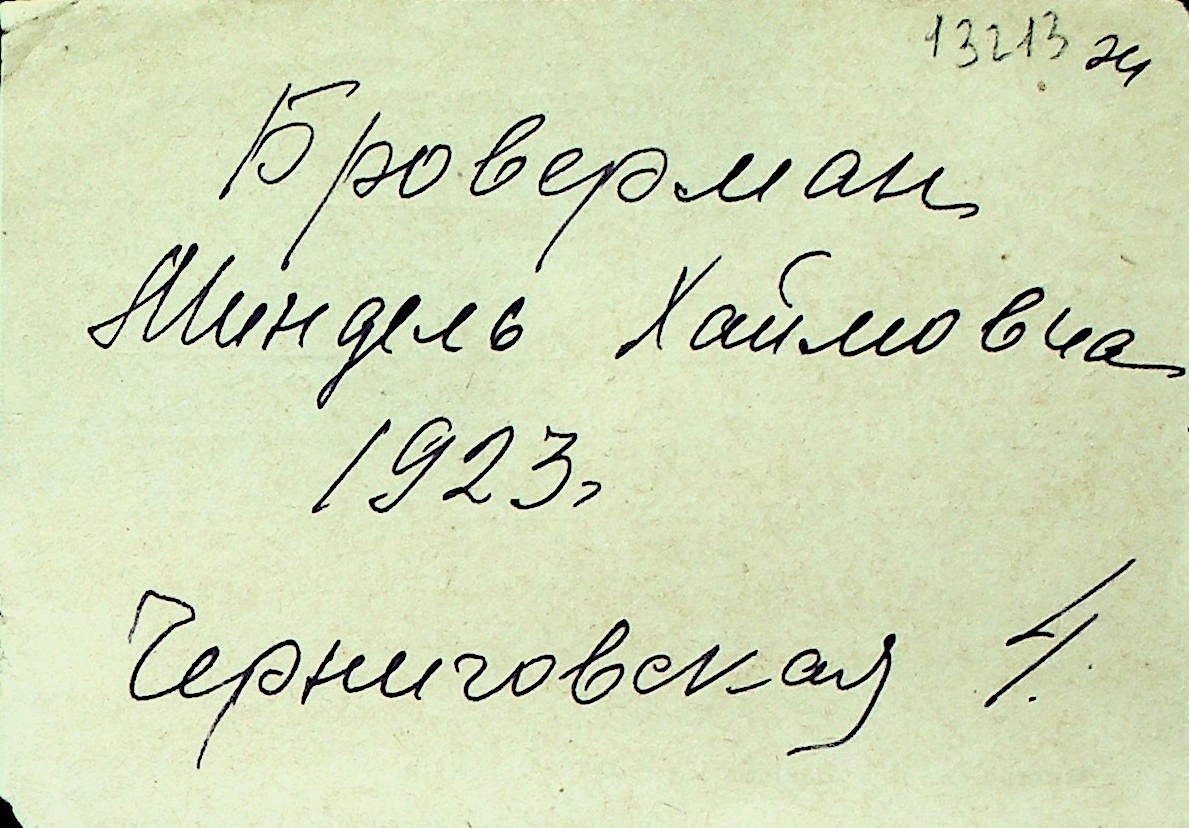 13213 ж
Броверман
Миндель Хаймовна
1923г
Черниговская 4.